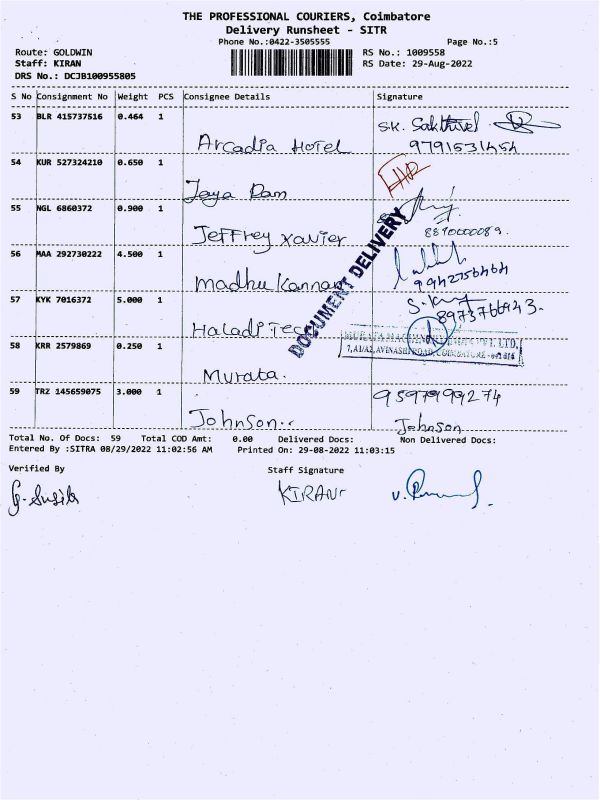 THE PROFESSIONAL COURIERS, Coimbatore
Delivery Runsheet - SITR
Phone No.:0422-3505555 Page No.:5
Route: GOLDWIN RS No.: 1009558
Staff: KIRAN RS Date: 29-Aug-2022
DRS No.: DCJB100955805
S No Consignment No Weight PCS Consignee Details Signature
53 BLR 415737516 0.464 1 Arcadia Hotel S.K. Sakthivel
9791531454
54 KUR 527324210 0.650 1 Jaya Ram
55 NGL 6860372 0.900 1 Jeffrey Xavier
56 MAA 292730222 4.500 1 Madhu Kannan
57 KYK 7016372 5.000 1 Haladi Tech
58 KRR 2579869 0.250 1 Murata.
DOCUMENT DELIVERY
7, A1/A2, AVINASHI ROAD, COIMBATORE
59 TRZ 145659075 3.000 1 Johnson..
9597999274
Johnson
Total No. Of Docs: 59 Total COD Amt: 0.00 Delivered Docs: Non Delivered Docs:
Entered By :SITRA 08/29/2022 11:02:56 AM Printed On: 29-08-2022 11:03:15
Verified By Staff Signature
G. Susila KIRAN